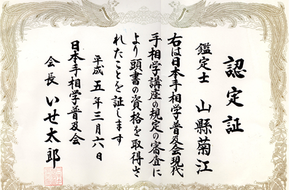 認定証
鑑定士　山縣菊江
右は日本手相学普及会現代
手相学講座の規定の審査に
より頭書の資格を取得さ
れたことを証します
平成五年三月六日
日本手相学普及会
会長　いせ太郎